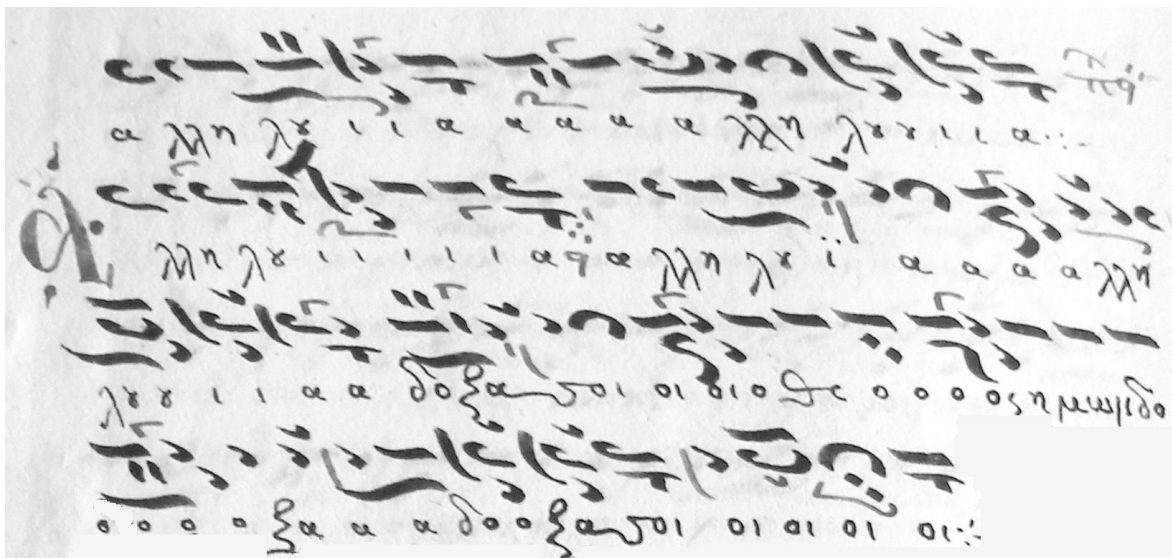 α λλη λȣ ι ι α α α α α λλη λȣ ȣ ι ι α
λλη λȣ ι ι ι ι ι α α λλη λȣ ι α α α α λλη
λȣ ȣ ι ι α α δο ξα σοι οι οι ο Θε ο ο ος
ο ο ο ο ξα α α δο ο ξα σοι οι οι οι οι